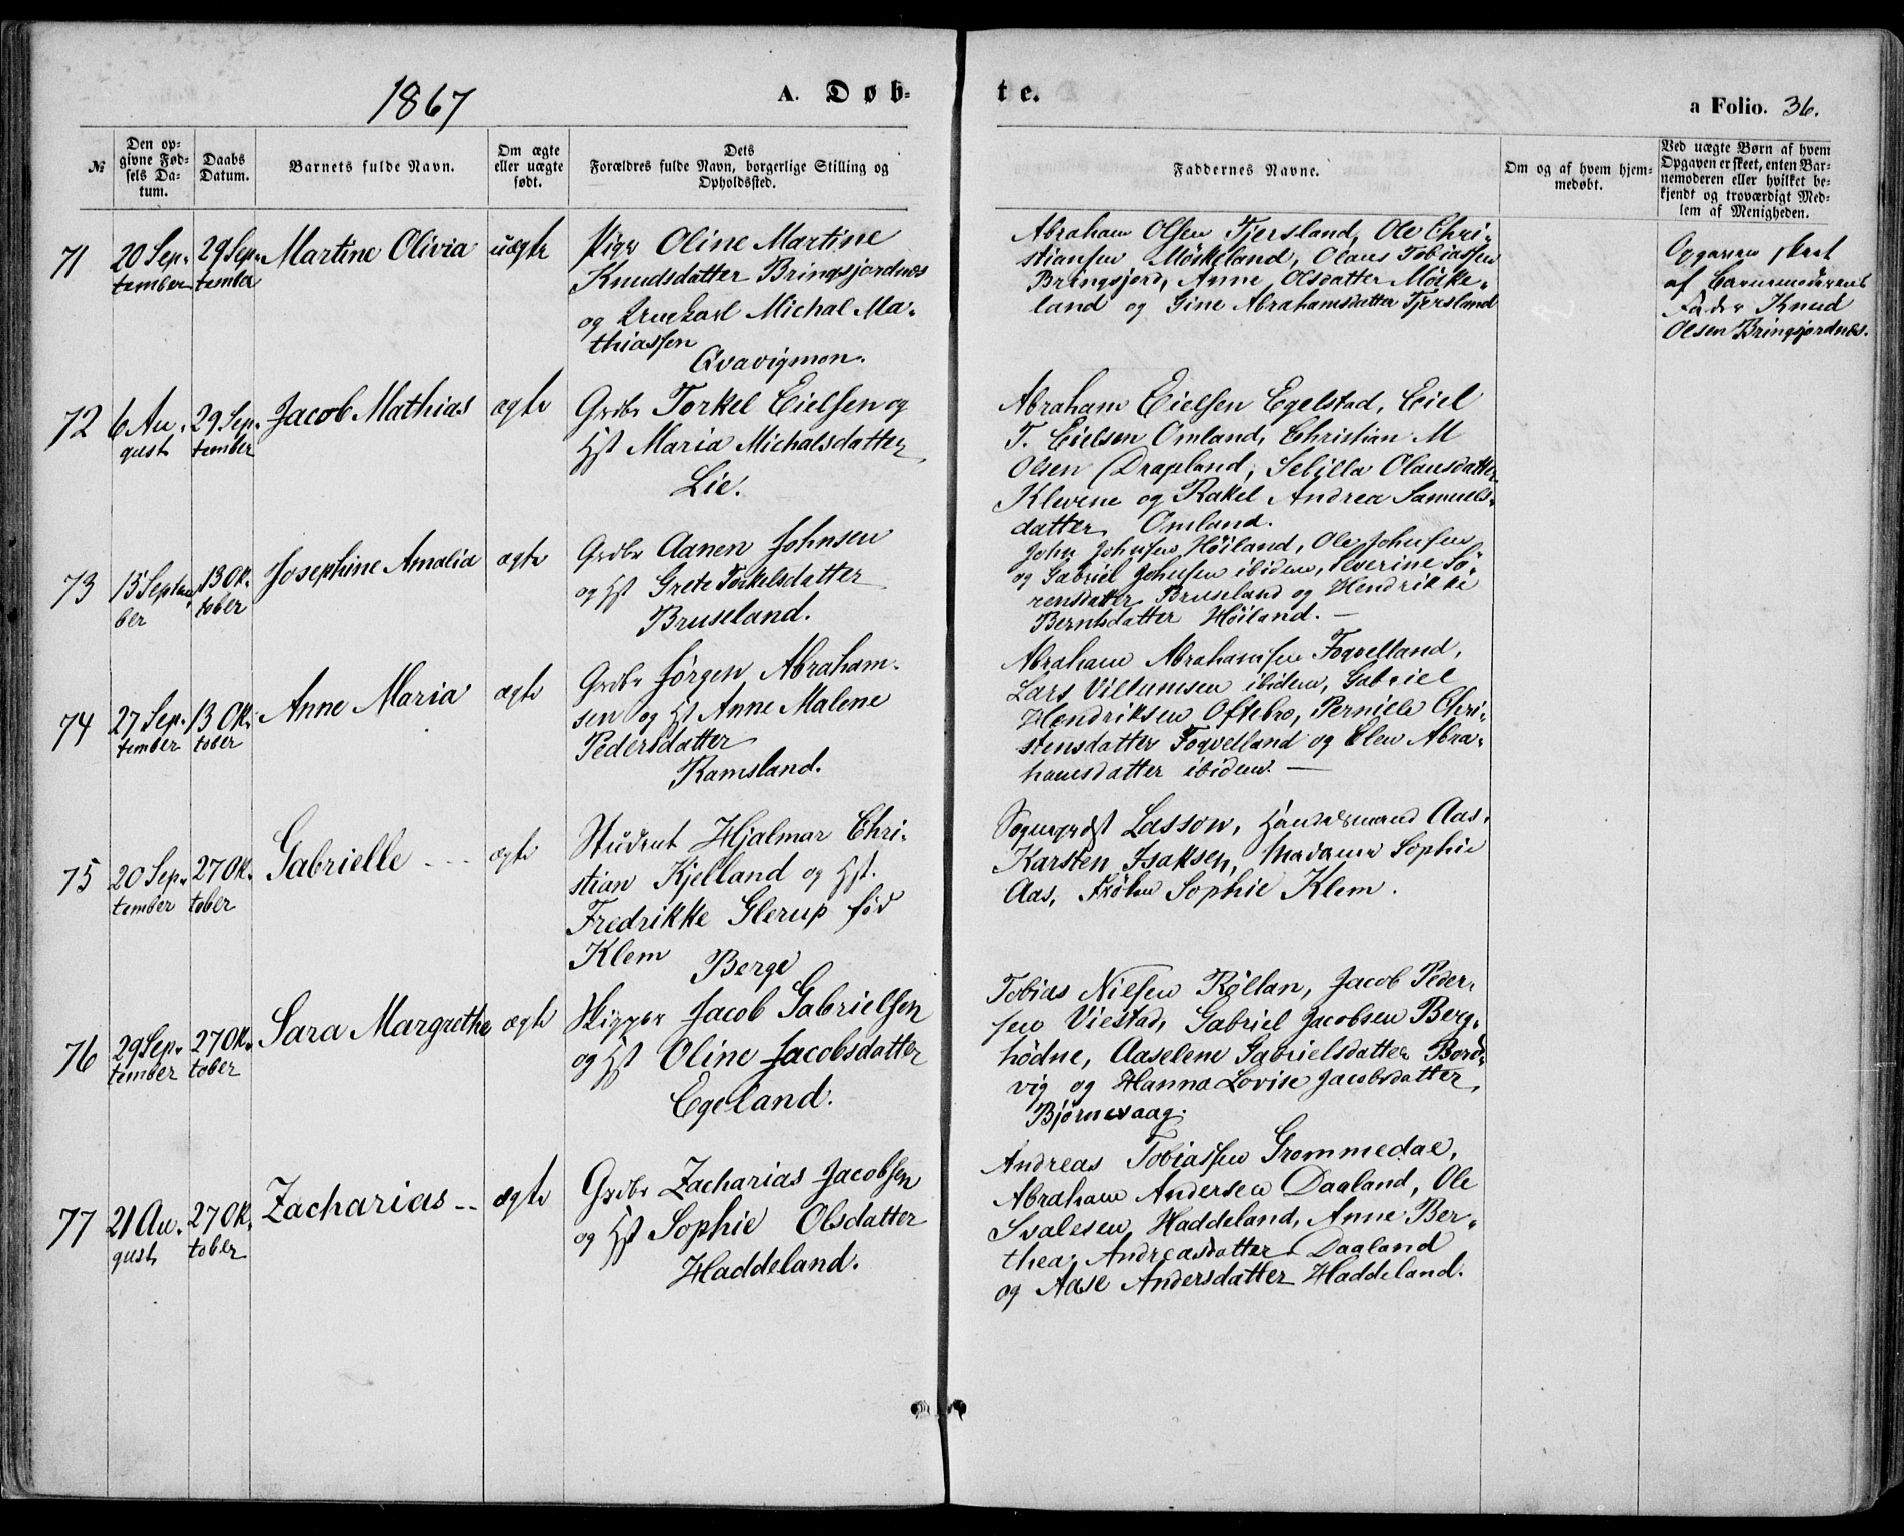 1867
A. Døb-
te.
a Folio. 36.
№
Den op-
givne Fød-
sels Da-
tum.
Daabs
Datum.
Barnets fulde Navn.
Om ægte
eller uægte
født.
Dets
Forældres fulde Navn, borgerlige Stilling og
Opholdssted.
Faddernes Navne.
Om og af hvem hjem-
medøbt.
Ved uægte Børn af hvem
Opgaven er skeet, enten Bar-
nemoderen eller hvilket be-
kjendt og troværdigt Med-
lem af Menigheden.
71
20 Sep-
tember
29 Sep-
tember
Martine Olivia
uægte
Pige Oline Martine
Knudsdatter Bringsjordnes
og Ungkarl Michal Ma-
thiassen
Qvavigmon.
Abraham Olsen Tjersland, Ole Chri-
stiansen Møskeland, Olaus Tobiassen
Bringsjord, Anne Olsdatter Møske-
land og Gine Abrahamsdatter Tjersland
Opgaven skeet
af Barnemoderens
Fader Knud
Olsen Bringsjordnes.
72
6 Au-
gust
29 Sep-
tember
Jacob Mathias
ægte
Grdbr Torkel Eielsen og
Hst Maria Michalsdatter
Lie.
Abraham Eielsen Egelstad, Eiel
T. Eielsen Omland, Christian M
Olsen Drapland, Sebilla Olausdatter
Klevene og Rakel Andrea Samuels-
datter Omland.
73
15 Septem
ber
13 Ok-
tober
Josephine Amalia
ægte
Grdbr Aanen Johnsen
og Hst Grete Torkelsdatter
Bruseland.
John Johnsen Høiland, Ole Johnsen
og Gabriel Johnsen ibidem, Severine Sö-
rensdatter Bruseland og Hendrikke
Berntsdatter Höiland. —
74
27 Sep-
tember
13 Ok-
tober
Anne Maria
ægte
Grdbr Jörgen Abraham-
sen og Hst Anne Malene
Pedersdatter
Ramsland.
Abraham Abrahamsen Foqvelland,
Lars Villumsen ibidem, Gabriel
Hendriksen Oftebro, Pernille Chri-
stensdatter Foqvelland og Elen Abra-
hamsdatter ibidem. —
75
20 Sep-
tember
27 Ok-
tober
Gabrielle ---
ægte
Student Hjalmar Chri-
stian Kjelland og Hst.
Fredrikke Glerup fød
Klem
Berge
Sogneprdst Lasson, Handelsmand Aas,
Karsten Isaksen, Madame Sophie
Aas, Frøken Sophie Klem.
76
29 Sep-
tember
27 Ok-
tober
Sara Margrethe
ægte
Skipper Jacob Gabrielsen
og Hst Oline Jacobsdatter
Egeland.
Tobias Nielsen Röllan, Jacob Peder-
sen Viestad, Gabriel Jacobsen Berg-
hödne, Aaselene Gabrielsdatter Bord-
vig og Hanna Lovise Jacobsdatter
Bjørnevaag.
77
21 Au-
gust
27 Ok-
tober
Zacharias --
ægte
Grdbr Zacharias Jacobsen
og Hst Sophie Olsdatter
Haddeland.
Andreas Tobiassen Grommedal,
Abraham Andersen Daaland, Ole
Svalesen Haddeland, Anne Ber-
thea Andreasdatter Daaland
og Aase Andersdatter Haddeland.